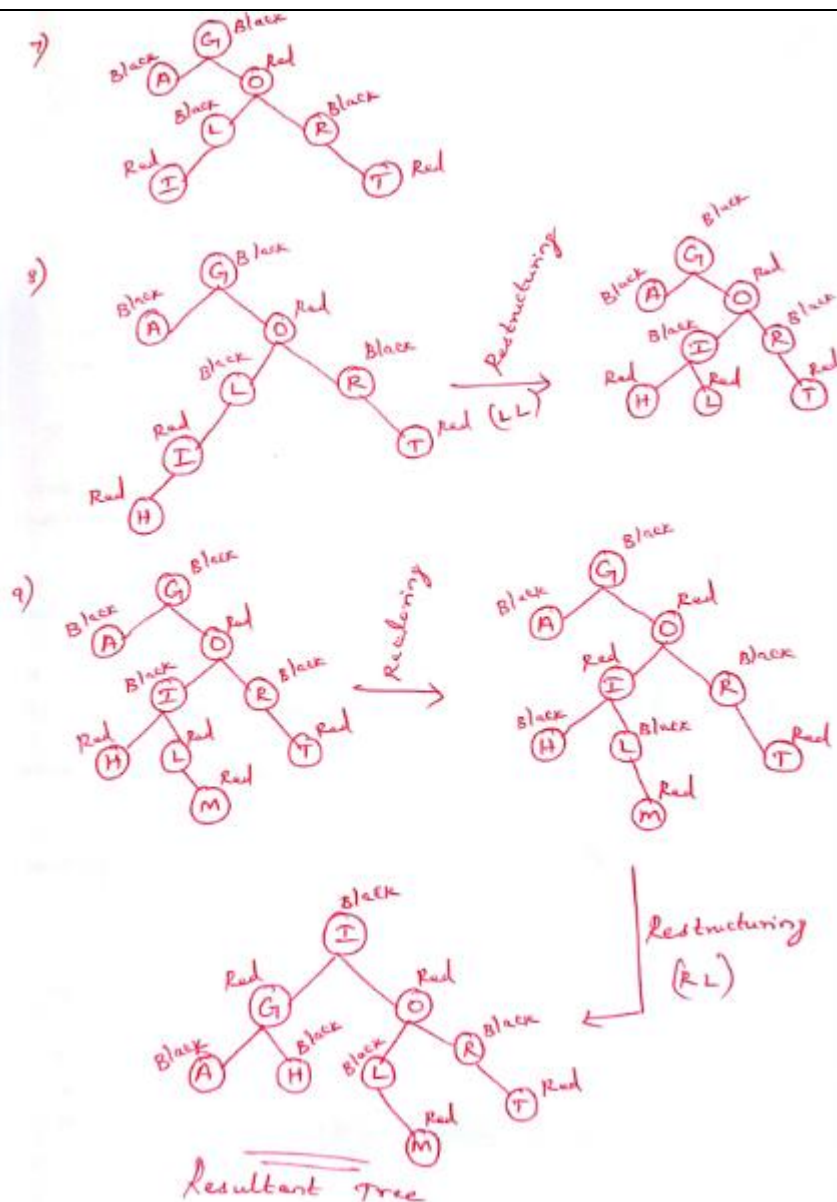 7)
Black G
Black A Red O
Black L Black R
Red I T Red
8)
G Black
Black A Red O
Black L Black R
Red I T Red
Red H
Restructuring
(LL)
Black
G
Black A Red O
Black I Black R
Red H Red L Red T
9)
G Black
Black A Red O
Black I Black R
Red H Red L Red T
Red M
Recoloring
Black
G
Black A Red O
Red I Black R
Black H Black L Red T
Red M
Restructuring
(RL)
Black
I
Red G Red O
Black A Black H Black L Black R
Red M Red T
Resultant Tree